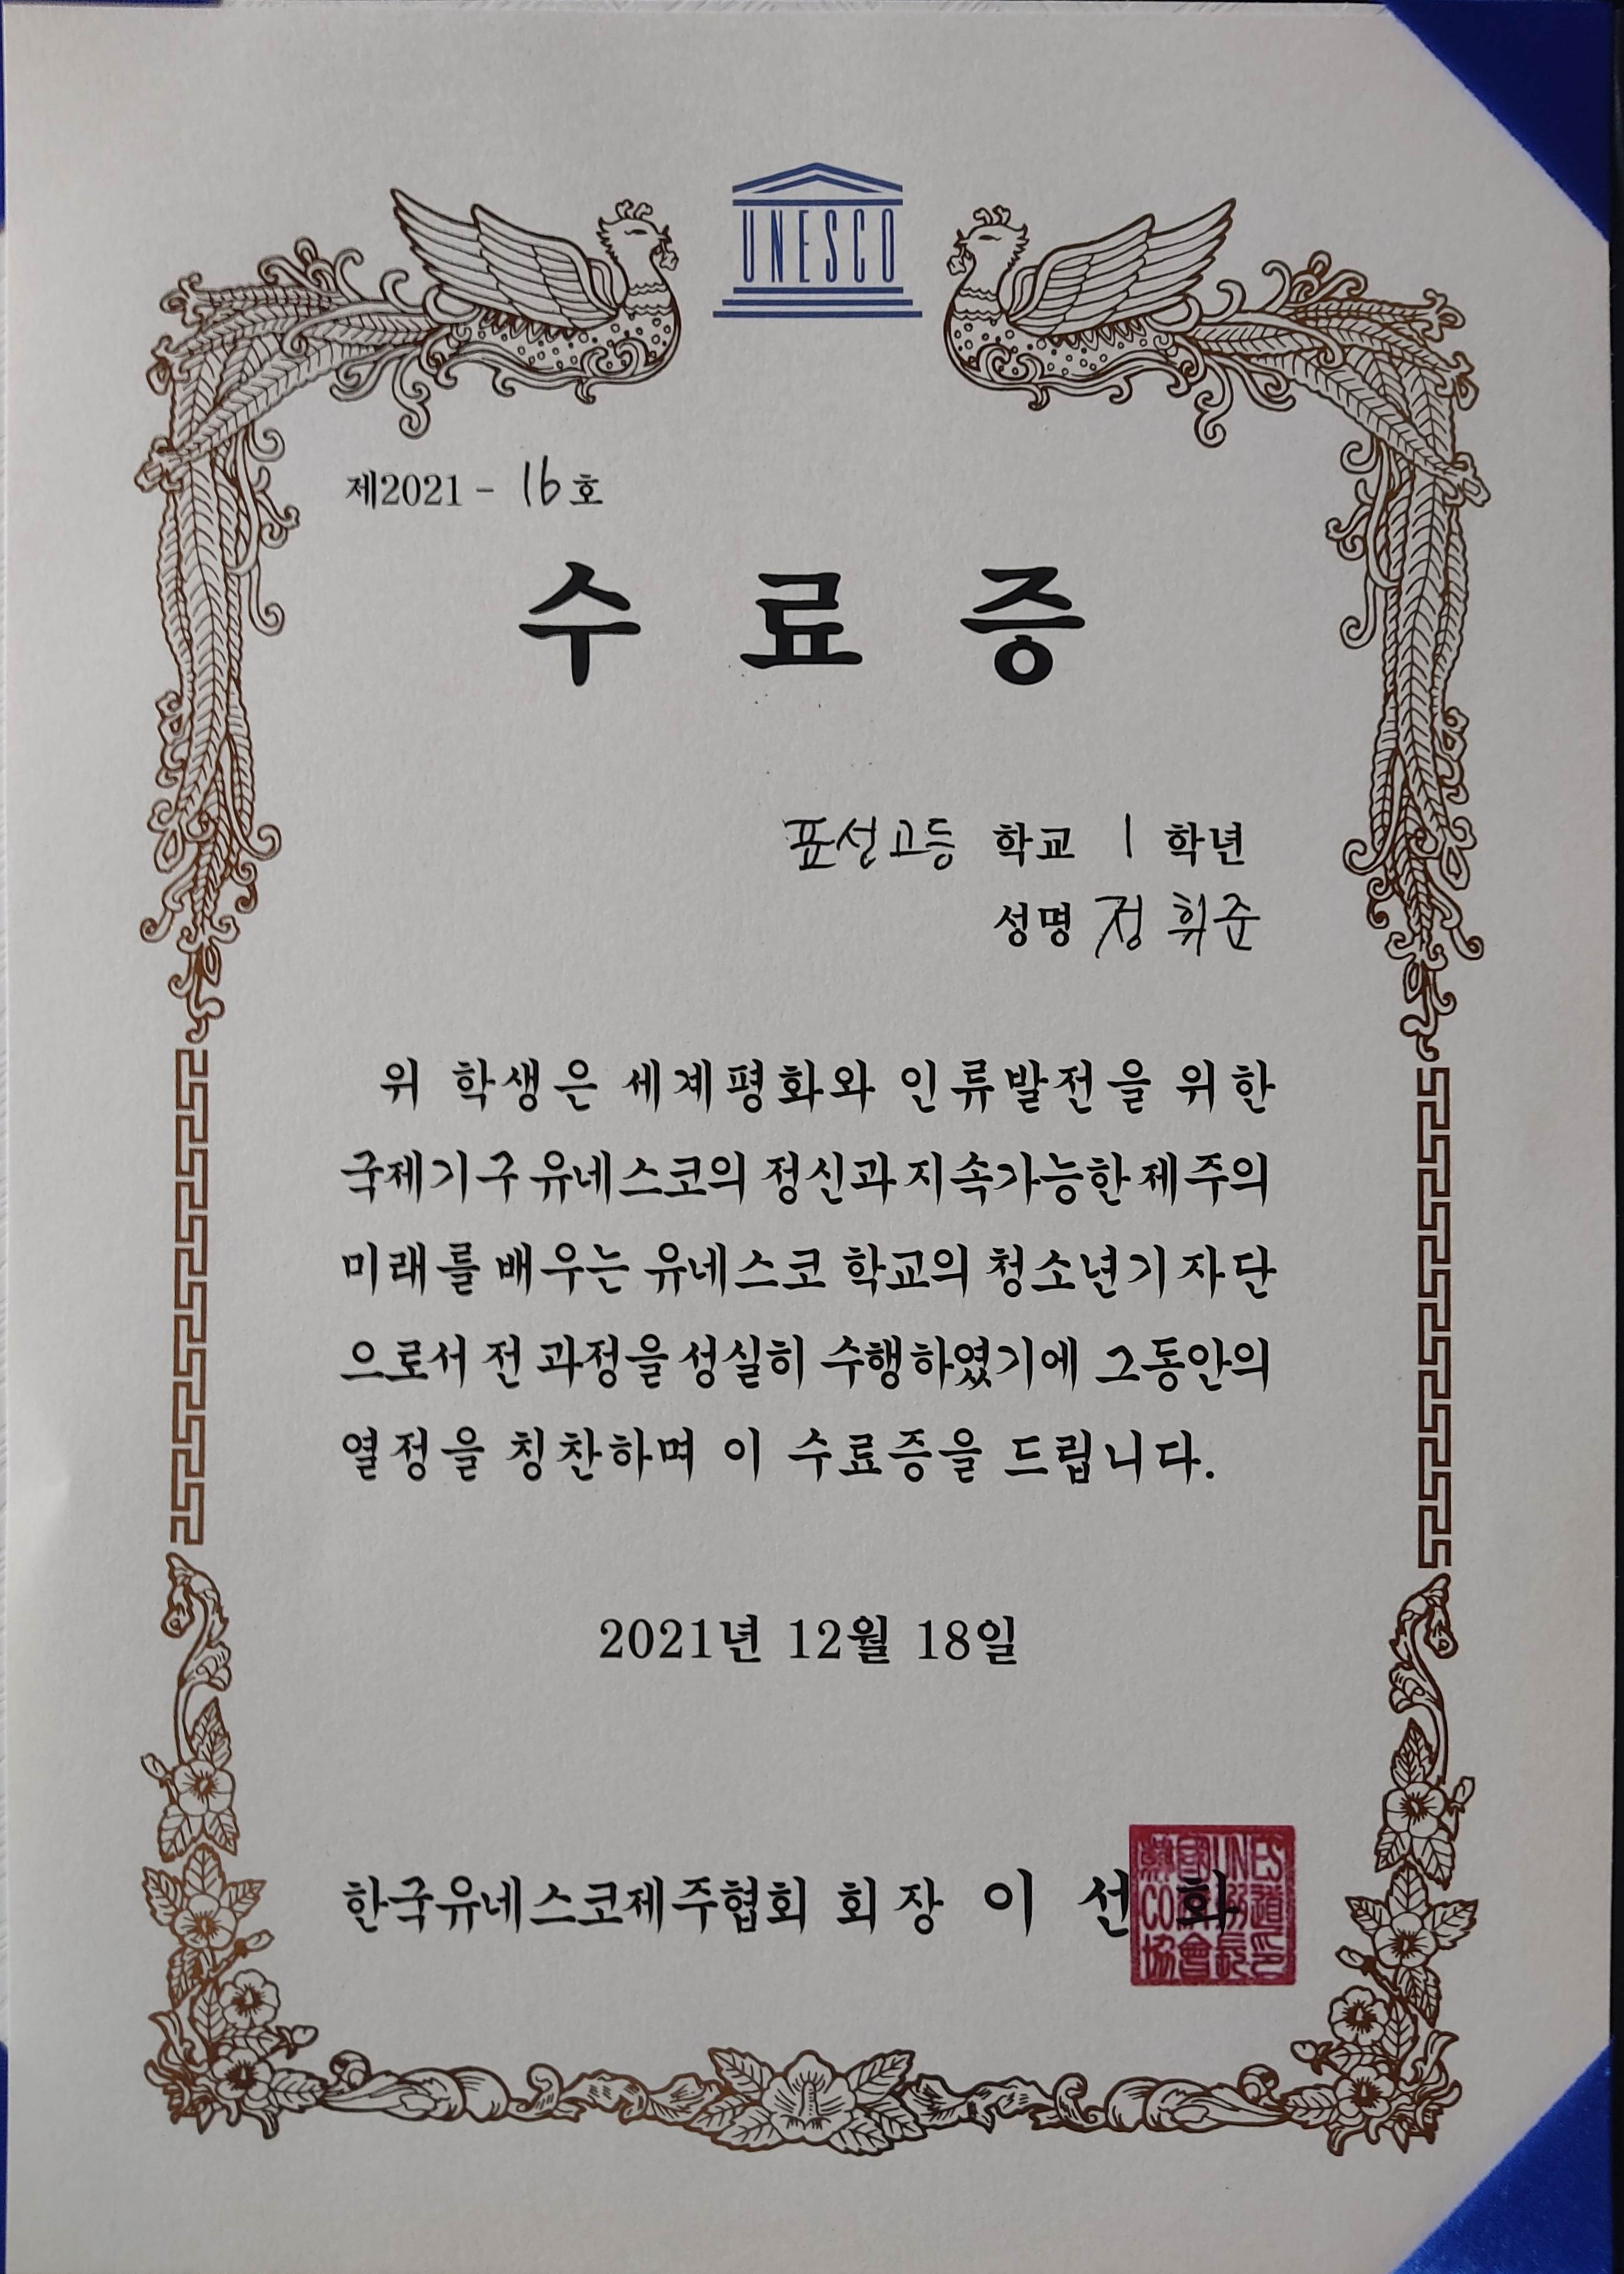 UNESCO
제2021 - 16호
수 료 증
표선고등 학교 1 학년
성명 정 휘준
위 학생은 세계평화와 인류발전을 위한
국제기구 유네스코의 정신과 지속가능한 제주의
미래를 배우는 유네스코 학교의 청소년기자단
으로서 전 과정을 성실히 수행하였기에 그동안의
열정을 칭찬하며 이 수료증을 드립니다.
2021년 12월 18일
한국유네스코제주협회 회장 이 선 화